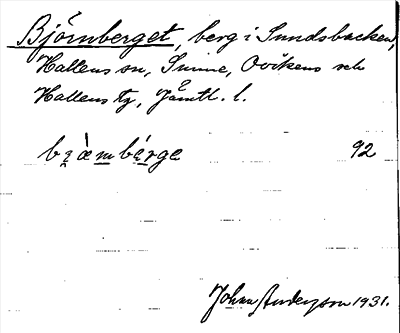 Björnberget, berg i Sundsbacken,
Hallens sn, Sunne, Ovikens och
Hallens tg, Jämtl. l.
bi̯ȁm bárge 92
Johan Anderzson 1931.